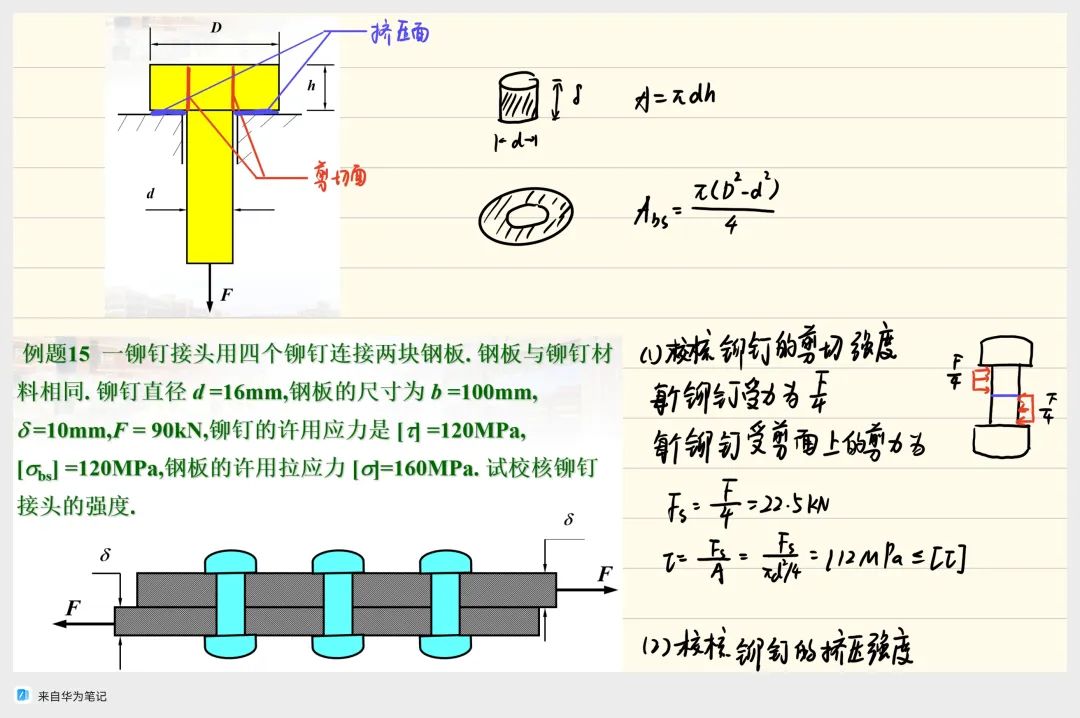 D
挤压面
h
剪切面
d
F
δ
d
A=πdh
A_bs=π(D²-d²)/4
例题15 一铆钉接头用四个铆钉连接两块钢板. 钢板与铆钉材
料相同. 铆钉直径 d =16mm,钢板的尺寸为 b =100mm,
δ =10mm,F = 90kN,铆钉的许用应力是 [τ] =120MPa,
[σbs] =120MPa,钢板的许用拉应力 [σ]=160MPa. 试校核铆钉
接头的强度.
δ
δ
F
F
(1)校核铆钉的剪切强度
每个铆钉受力为 F/4
每个铆钉受剪面上的剪力为
Fs=F/4=22.5kN
τ=Fs/A=Fs/(πd²/4)=112MPa≤[τ]
F/4
F/4
(2)校核铆钉的挤压强度
来自华为笔记